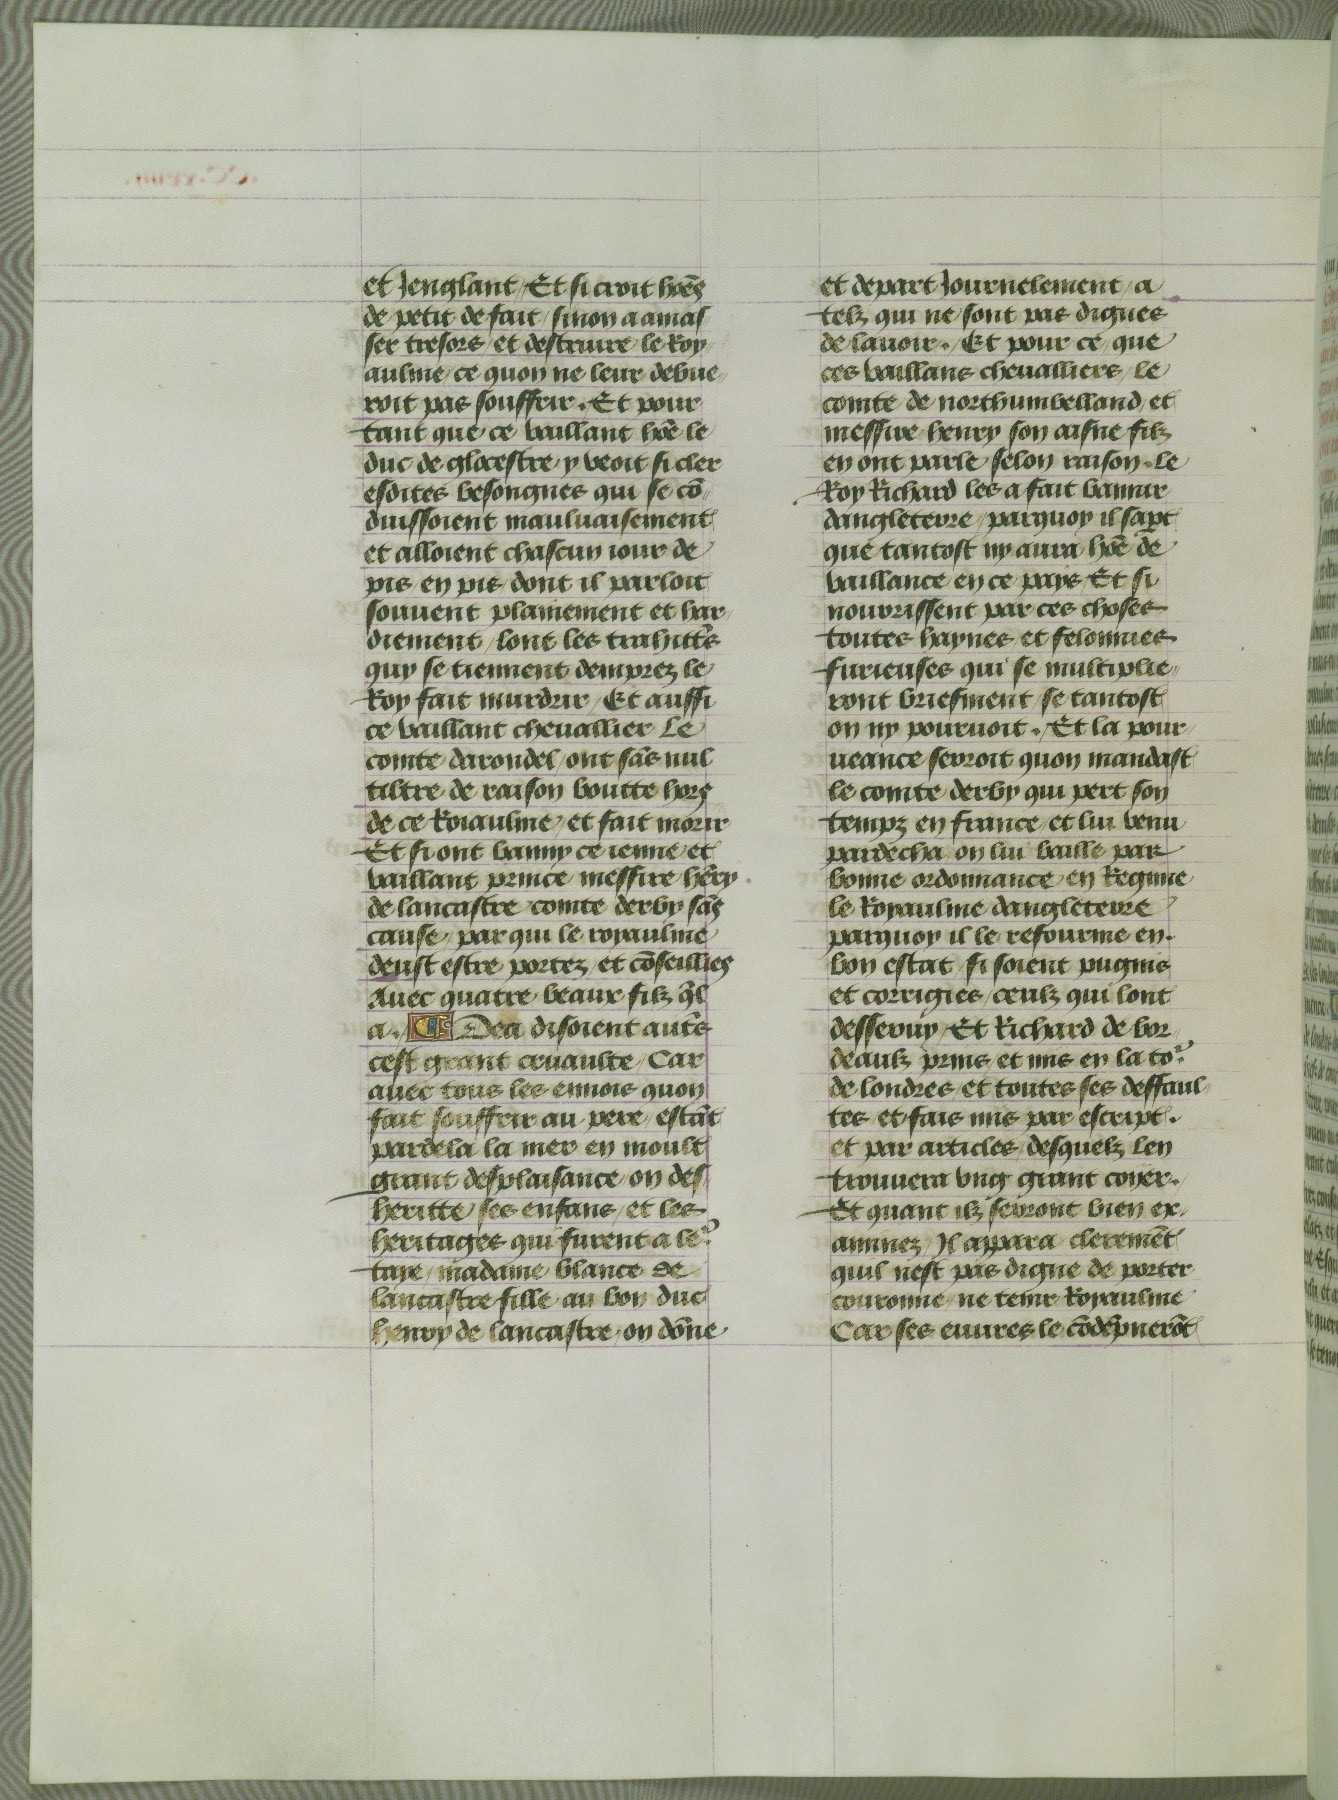 et Jenglant / Et si croit hoēs
de petit de fait / sinon a amas
ser tresors / et destruire le Roy
aulme / ce quon ne leur debue
roit pas souffrir . Et pour
tant que ce vaillant hoē le
duc de glocestre y veoit si cler
esdites besongnes qui se cō
duissoient mauluaisement
et alloient chascun iour de
pis en pis / dont il parloit
souuent plainement et har
diement / lont les trahittrs
quy se tiennent demprez le
Roy fait murdrir / Et aussi
ce vaillant cheuallier Le
comte darondel / ont sās nul
tiltre de raison boutte hors
de ce Roiaulme / et fait morir
Et si ont banny ce ienne et
vaillant prince messire hēry
de lancastre comte derby sās
cause / par qui le royaulme
deust estre portez / et cōseillies
Auec quatre beaux filz ql
a . Dea disoient autrs
cest grant cruaulte / Car
auec tous les ennois quon
fait souffrir au pere / estāt
pardela la mer en moult
grant desplaisance / on des
heritte ses enfans / et les
heritages qui furent a le
taye / madame blance de
lancastre fille au bon duc
henry de lancastre / on dōne
et depart Journelement / a
telz qui ne sont pas dignes
de lauoir . Et pour ce que
ces vaillans cheualliers / le
comte de northumbelland / et
messire henry son aisne filz
en ont parle selon raison . le
Roy Richard les a fait bannir
dangleterre / parquoy il sapt
que tantost ny aura hoē de
vaillance en ce pays / Et si
nourrissent par ces choses
toutes haynes et felonnies
furieuses qui se multiplie
ront briefment se tantost
on ny pouruoit . Et la pour
ueance seroit quon mandast
le comte derby qui pert son
tempz en france / et lui venu
pardecha on lui baille par
bonne ordonnance en Regime
le Royaulme dangleterre
parquoy il le refourme en
bon estat / si soient pugnis
et corrigies / ceulz qui lont
desseruy / Et Richard de bor
deaulz prins / et mis en la to
de londres / et toutes ses deffaul
tes et fais mis par escript .
et par articles / desquelz Len
trouuera vng grant coyer .
Et quant ilz seront bien ex
aminez / Jl appara cleremēt
quil nest pas digne de porter
couronne / ne tenir Royaulme
Car ses euures le cōdēpnerōt